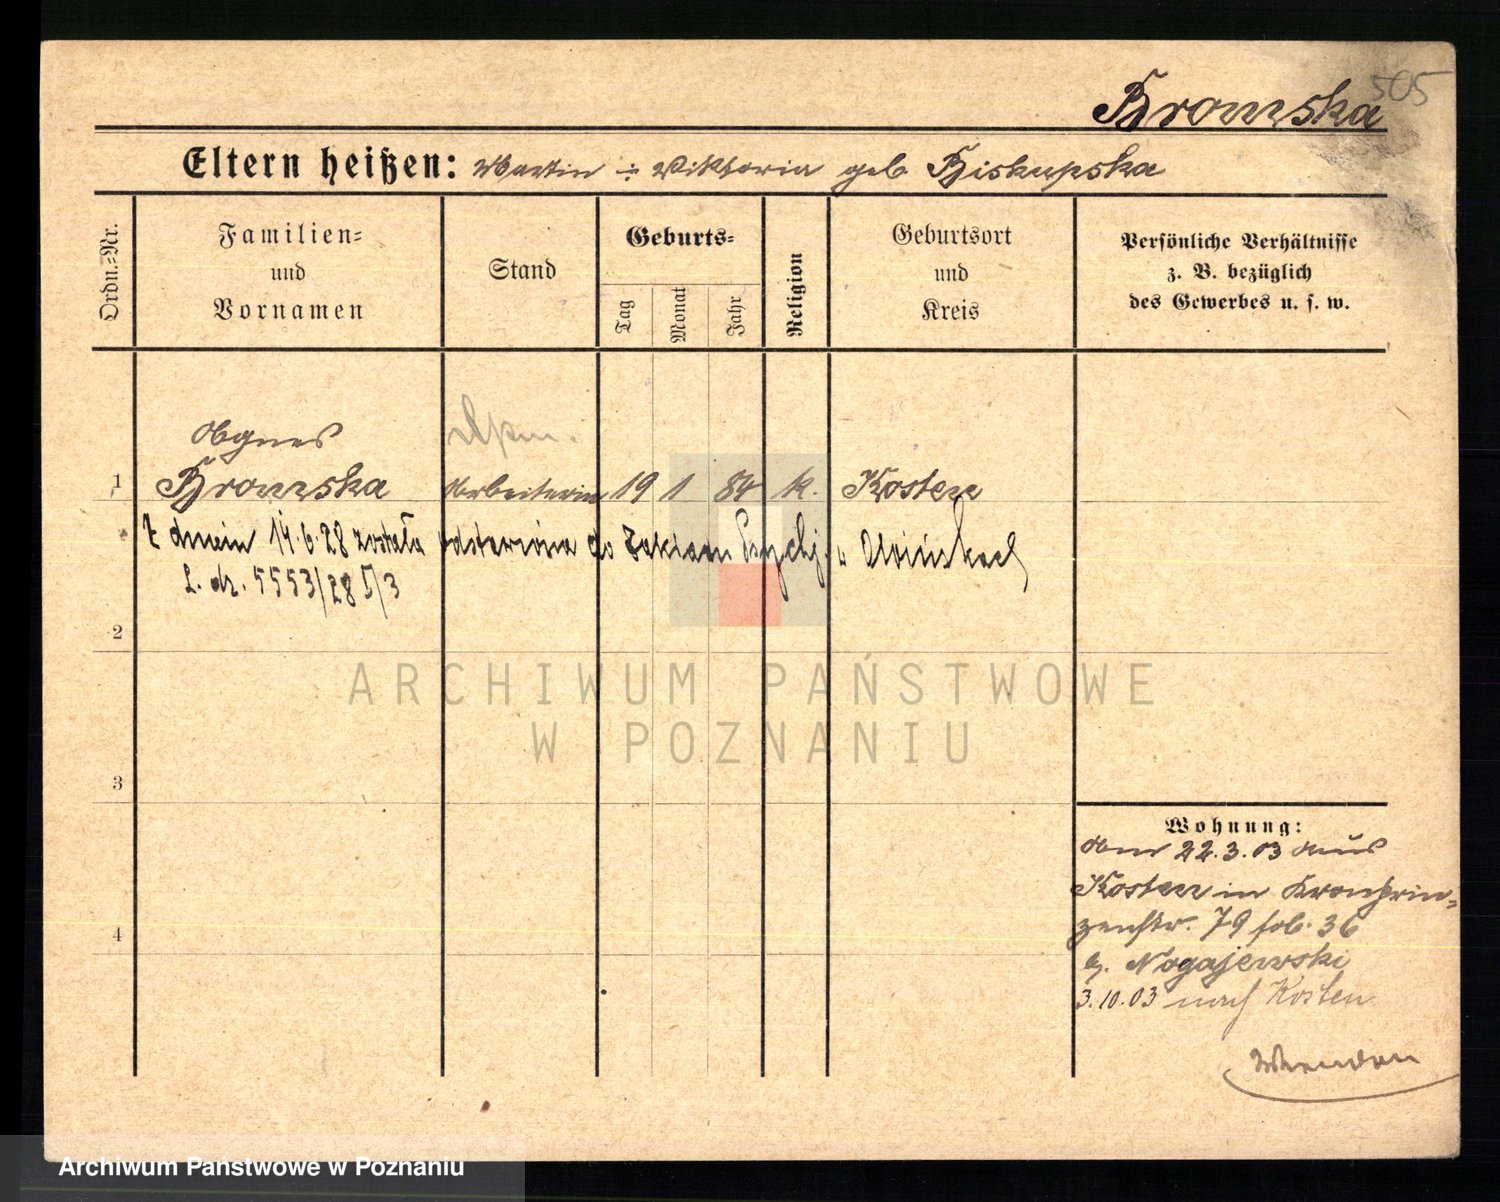 505
Bromska
Eltern heißen: Martin ÷ Viktoria geb Biskupska
Ordn.=Nr.
Familien=
und
Vornamen
Stand
Geburts=
Tag
Monat
Jahr
Religion
Geburtsort
und
Kreis
Persönliche Verhältnisse
z. B. bezüglich
des Gewerbes u. s. w.
Agnes
1 Bromska Arbeiterin 19 1 84 k. Kosten
dniem 14.6.28 została odstawiona do Psych. w Owińskach
L. dz. 5553/28 I/3
2
3
4
Wohnung:
Am 22.3.03 aus
Kosten in Kronprin=
zenstr. 79
b. Nogajewski
3.10.03 nach Kosten
ARCHIWUM PAŃSTWOWE
W POZNANIU
Archiwum Państwowe w Poznaniu